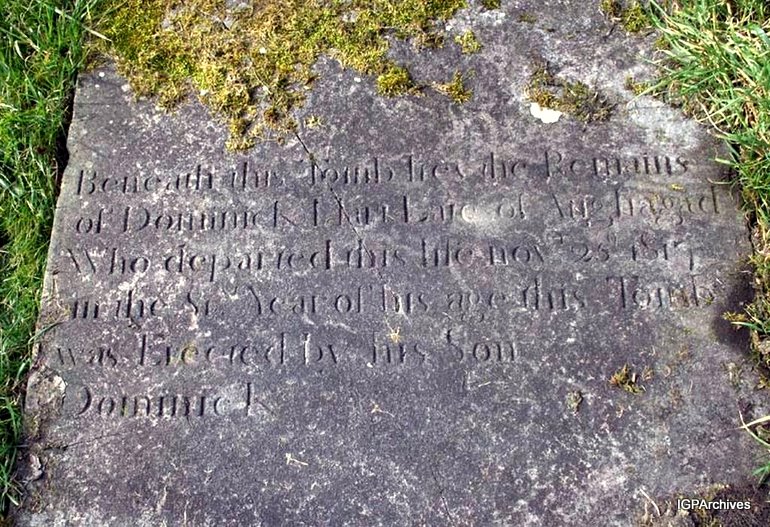 Beneath this Tomb lyes the Remains
of Dominick Late of
Who departed this life novr 1817
in the Year of his age this Tomb
was Erected by his Son
Dominick
IGPArchives